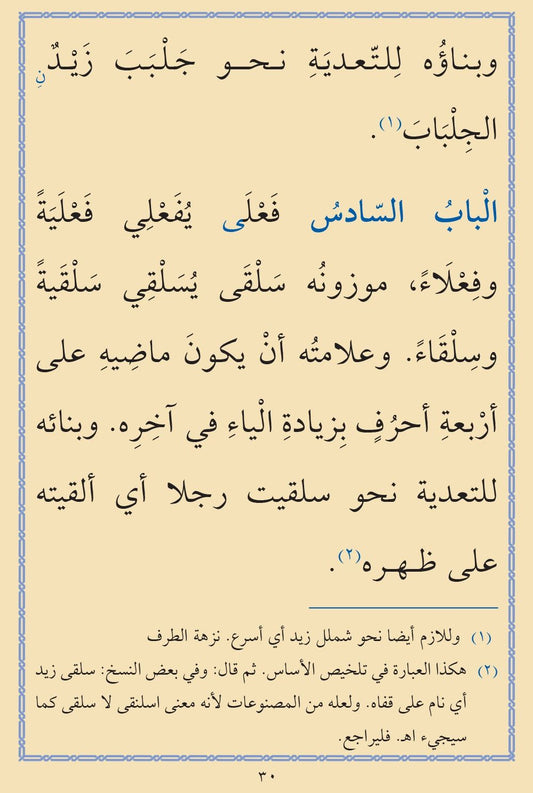 وبناؤُه لِلتّعديَةِ نحو جَلْبَبَ زَيْدٌنِ
الجِلْبَابَ(١).
الْبابُ السّادسُ فَعْلَى يُفَعْلِي فَعْلَيَةً
وفِعْلَاءً، موزونُه سَلْقَى يُسَلْقِي سَلْقَيةً
وسِلْقَاءً. وعلامتُه أنْ يكونَ ماضِيهِ على
أرْبعةِ أحرُفٍ بِزيادةِ الْياءِ في آخِرِه. وبنائه
للتعدية نحو سلقيت رجلا أي ألقيته
على ظهره(٢).
(١) وللازم أيضا نحو شملل زيد أي أسرع. نزهة الطرف
(٢) هكذا العبارة في تلخيص الأساس. ثم قال: وفي بعض النسخ: سلقى زيد
أي نام على قفاه. ولعله من المصنوعات لأنه معنى اسلنقى لا سلقى كما
سيجيء اهـ. فليراجع.
٣٠